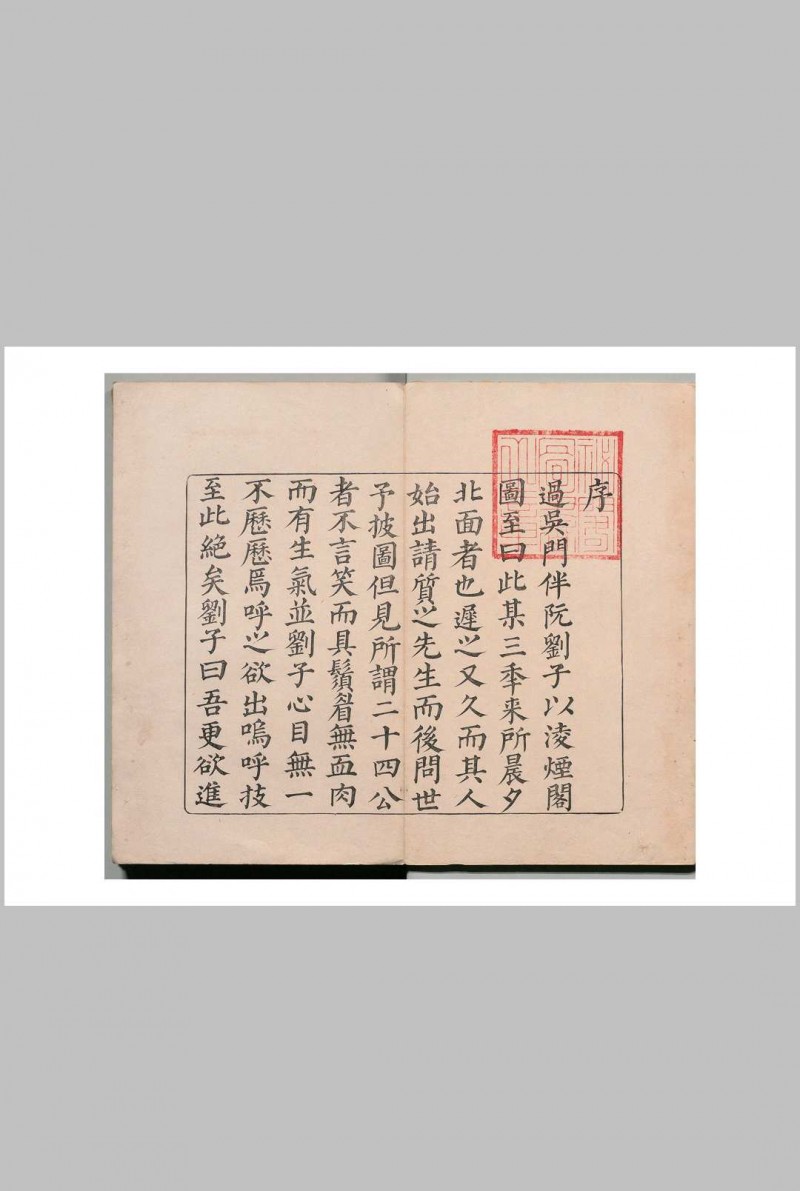 序
過吳門伴阮劉子以淩煙閣
圖至曰此某三秊来所晨夕
北面者也遲之又久而其人
始出請質之先生而後問世
予披圖但見所謂二十四公
者不言笑而具鬚眉無血肉
而有生氣並劉子心目無一
不歷歷焉呼之欲出嗚呼技
至此絕矣劉子曰吾更欲進